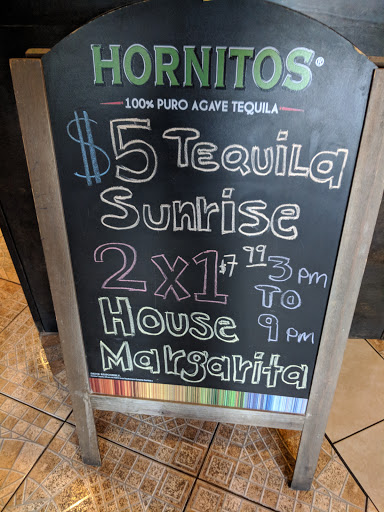 HORNITOS®
100% PURO AGAVE TEQUILA
$5 TEQUILA
Sunrise
2x1 $7.99 3 pm
TO
House 9 pm
Margarita